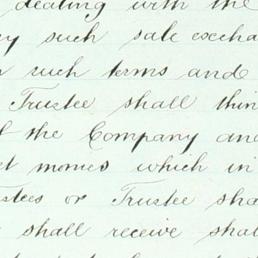 dealing with the
such sale excha
such terms and
Trustee shall thin
the Company and
monies which in
stees or Trustee sha
shall receive shal